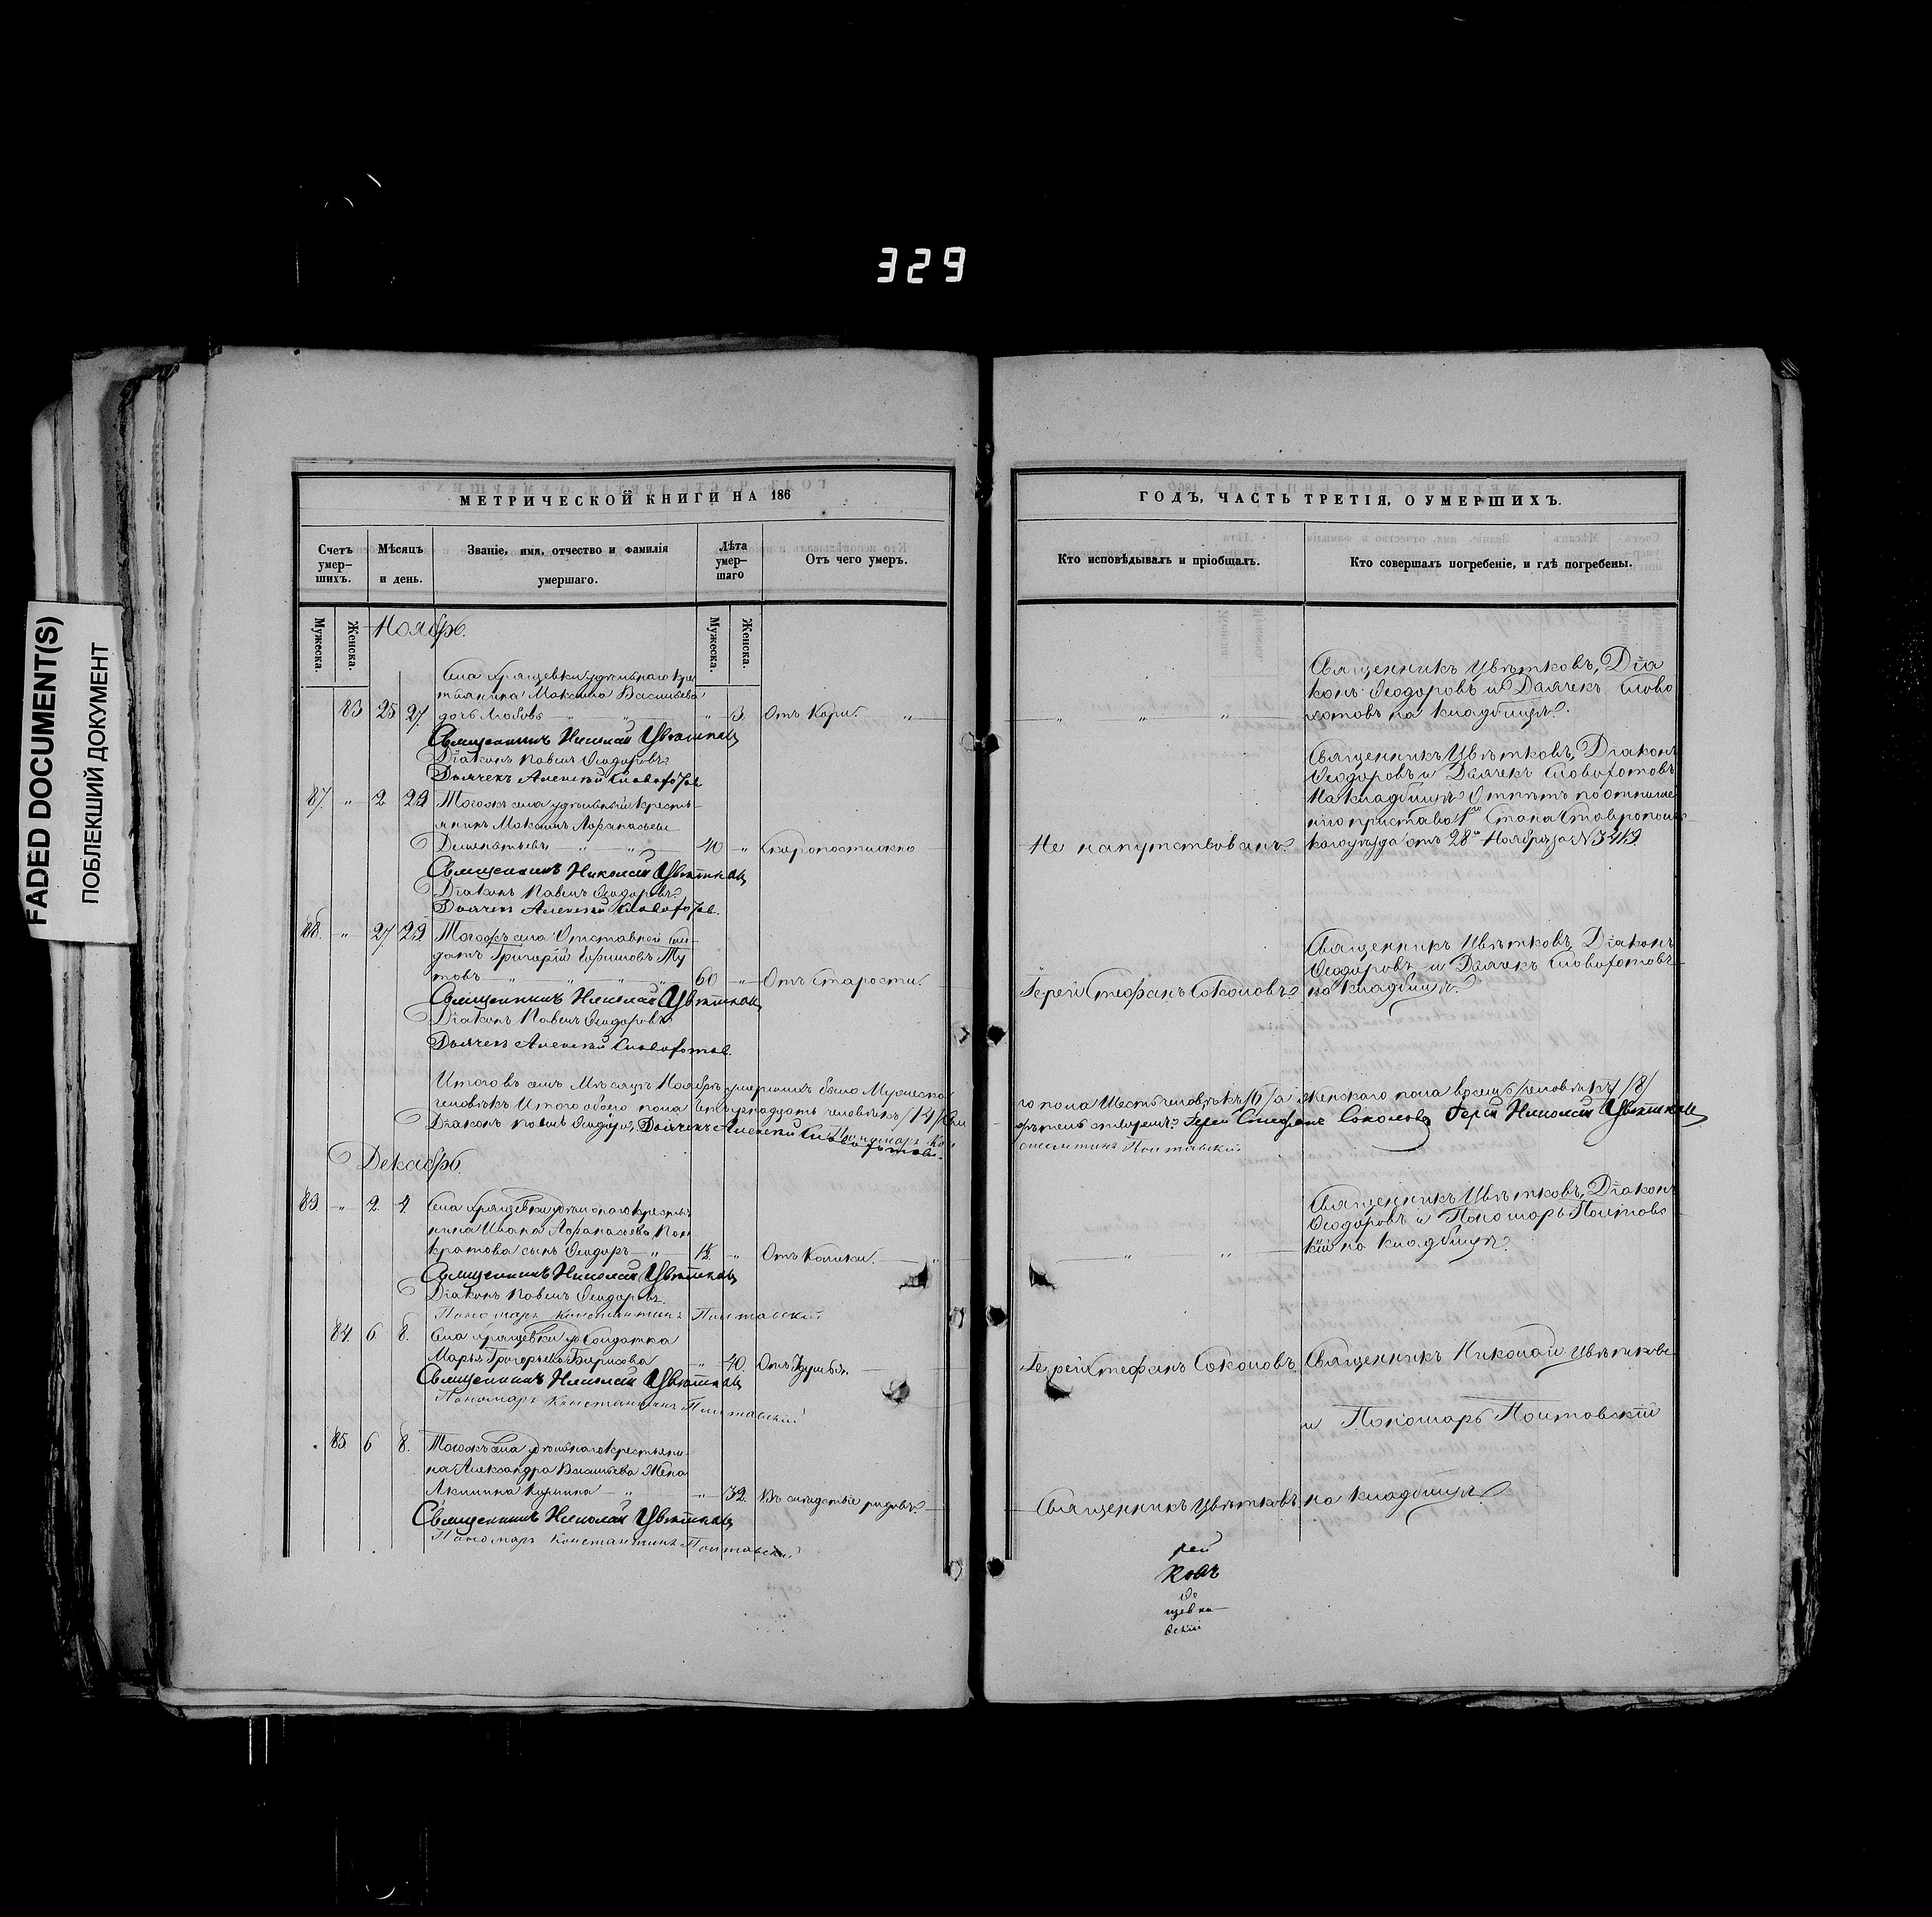 329
FADED DOCUMENT(S)
ПОБЛЕКШИЙ ДОКУМЕНТ
МЕТРИЧЕСКОЙ КНИГИ НА 186
Счетъ умер-шихъ.
Мѣсяцъ и день.
Званіе, имя, отчество и фамилія умершаго.
Лѣта умер-шаго
Отъ чего умеръ.
Мужеска.
Женска.
Мужеска.
Женска.
Ноябрь.
Села Хрящевки удѣльнаго крес
тьянина Максима Васильева
83 25 27 дочь Любовь " 3. Отъ Кори. "
Священникъ Николай Цвѣтковъ
Діаконъ Павелъ Ѳеодоровъ
Дьячекъ Алексѣй Словохотовъ
87 " 2 29 Тогожъ села удѣльный кресть-
янинъ Максимъ Афанасьевъ
40 " Скоропостижно
Священникъ Николай Цвѣтковъ
Діаконъ Павелъ Ѳеодоровъ
Дьячекъ Алексѣй Словохотовъ.
88. " 27 29 Тогожъ села Отставной сол-
датъ Григорій
60 " Отъ Старости.
Священникъ Николай Цвѣтковъ
Діаконъ Павелъ Ѳеодоровъ
Дьячекъ Алексѣй Словохотовъ.
Итого въ семъ Мѣсяцѣ Ноябрѣ умершихъ было Мужеска
человѣкъ Итого обоего пола Четырнадцать человѣкъ /14/
Діаконъ Павелъ Ѳеодоровъ Дьячекъ Алексѣй Словохотовъ. Пономарь Кон
Декабрь.
89. " 2 4 Села Хрящевки удѣльнаго кресть
нина Ивана Афанасьева Пан
кратова сынъ Ѳеодоръ " " Отъ Колики. "
Священникъ Николай Цвѣтковъ
Діаконъ Павелъ Ѳеодоровъ.
Пономарь Константинъ Полтавскій
84. 6 8. Села Хрящевки Солдатка
Марья Григорьева Борисова " 40. Отъ
Священникъ Николай Цвѣтковъ
Пономарь Константинъ Полтавскій
85 6 8. Тогожъ села удѣльнаго крестьяни-
на Александра Васильева Жена
Акилина " " 32. Въ слѣдствіе родовъ.
Священникъ Николай Цвѣтковъ
Пономарь Константинъ Полтавскій
ГОДЪ, ЧАСТЬ ТРЕТІЯ, О УМЕРШИХЪ.
Кто исповѣдывалъ и пріобщалъ.
Кто совершалъ погребеніе, и гдѣ погребены.
Священникъ Цвѣтковъ, Діа
конъ Ѳеодоровъ и Дьячекъ Слово
" " " хотовъ на кладбищѣ.
Священникъ Цвѣтковъ, Діаконъ
Ѳеодоровъ и Дьячекъ Словохотовъ
На кладбищѣ Отпѣтъ по отноше
нію пристава 1го Стана Ставрополь
Не напутствованъ. каго уѣзда отъ 28го Ноября за № 3419.
Священникъ Цвѣтковъ, Діаконъ
Ѳеодоровъ и Дьячекъ Словохотовъ
Іерей Стефанъ Соколовъ. на кладбищѣ.
го пола Шесть человѣкъ /6/ а Женскаго пола восемь человѣкъ /8/
Іерей Стефанъ Соколовъ Іерей Николай Цвѣтковъ
стантинъ Полтавскій
Священникъ Цвѣтковъ, Діаконъ
Ѳеодоровъ и Пономарь Полтавс
" " кій на кладбищѣ.
Іерей Стефанъ Соколовъ Священникъ Николай Цвѣтковъ
и Пономарь Полтавскій
Священникъ Цвѣтковъ на кладбищѣ.
рей
ковъ
Ѳе
щевки
вскій